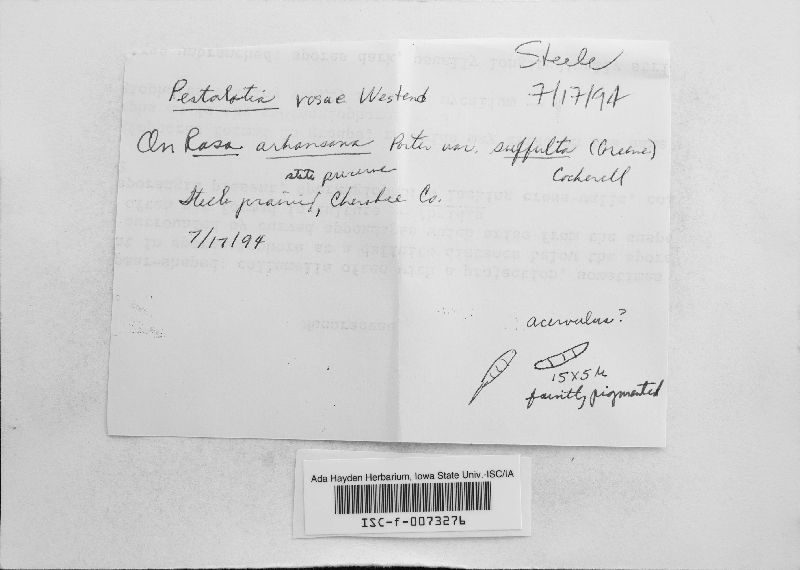 Steele
7/17/94
Pestalotia rosae Westend
On Rosa arkansana Porter var. suffulta (Greene)
Cockerell
state preserve
Steele prairie, Cherokee Co.
7/17/94
acervulus?
15X5µ
faintly pigmented
Ada Hayden Herbarium, Iowa State Univ.-ISC/IA
ISC-f-0073276